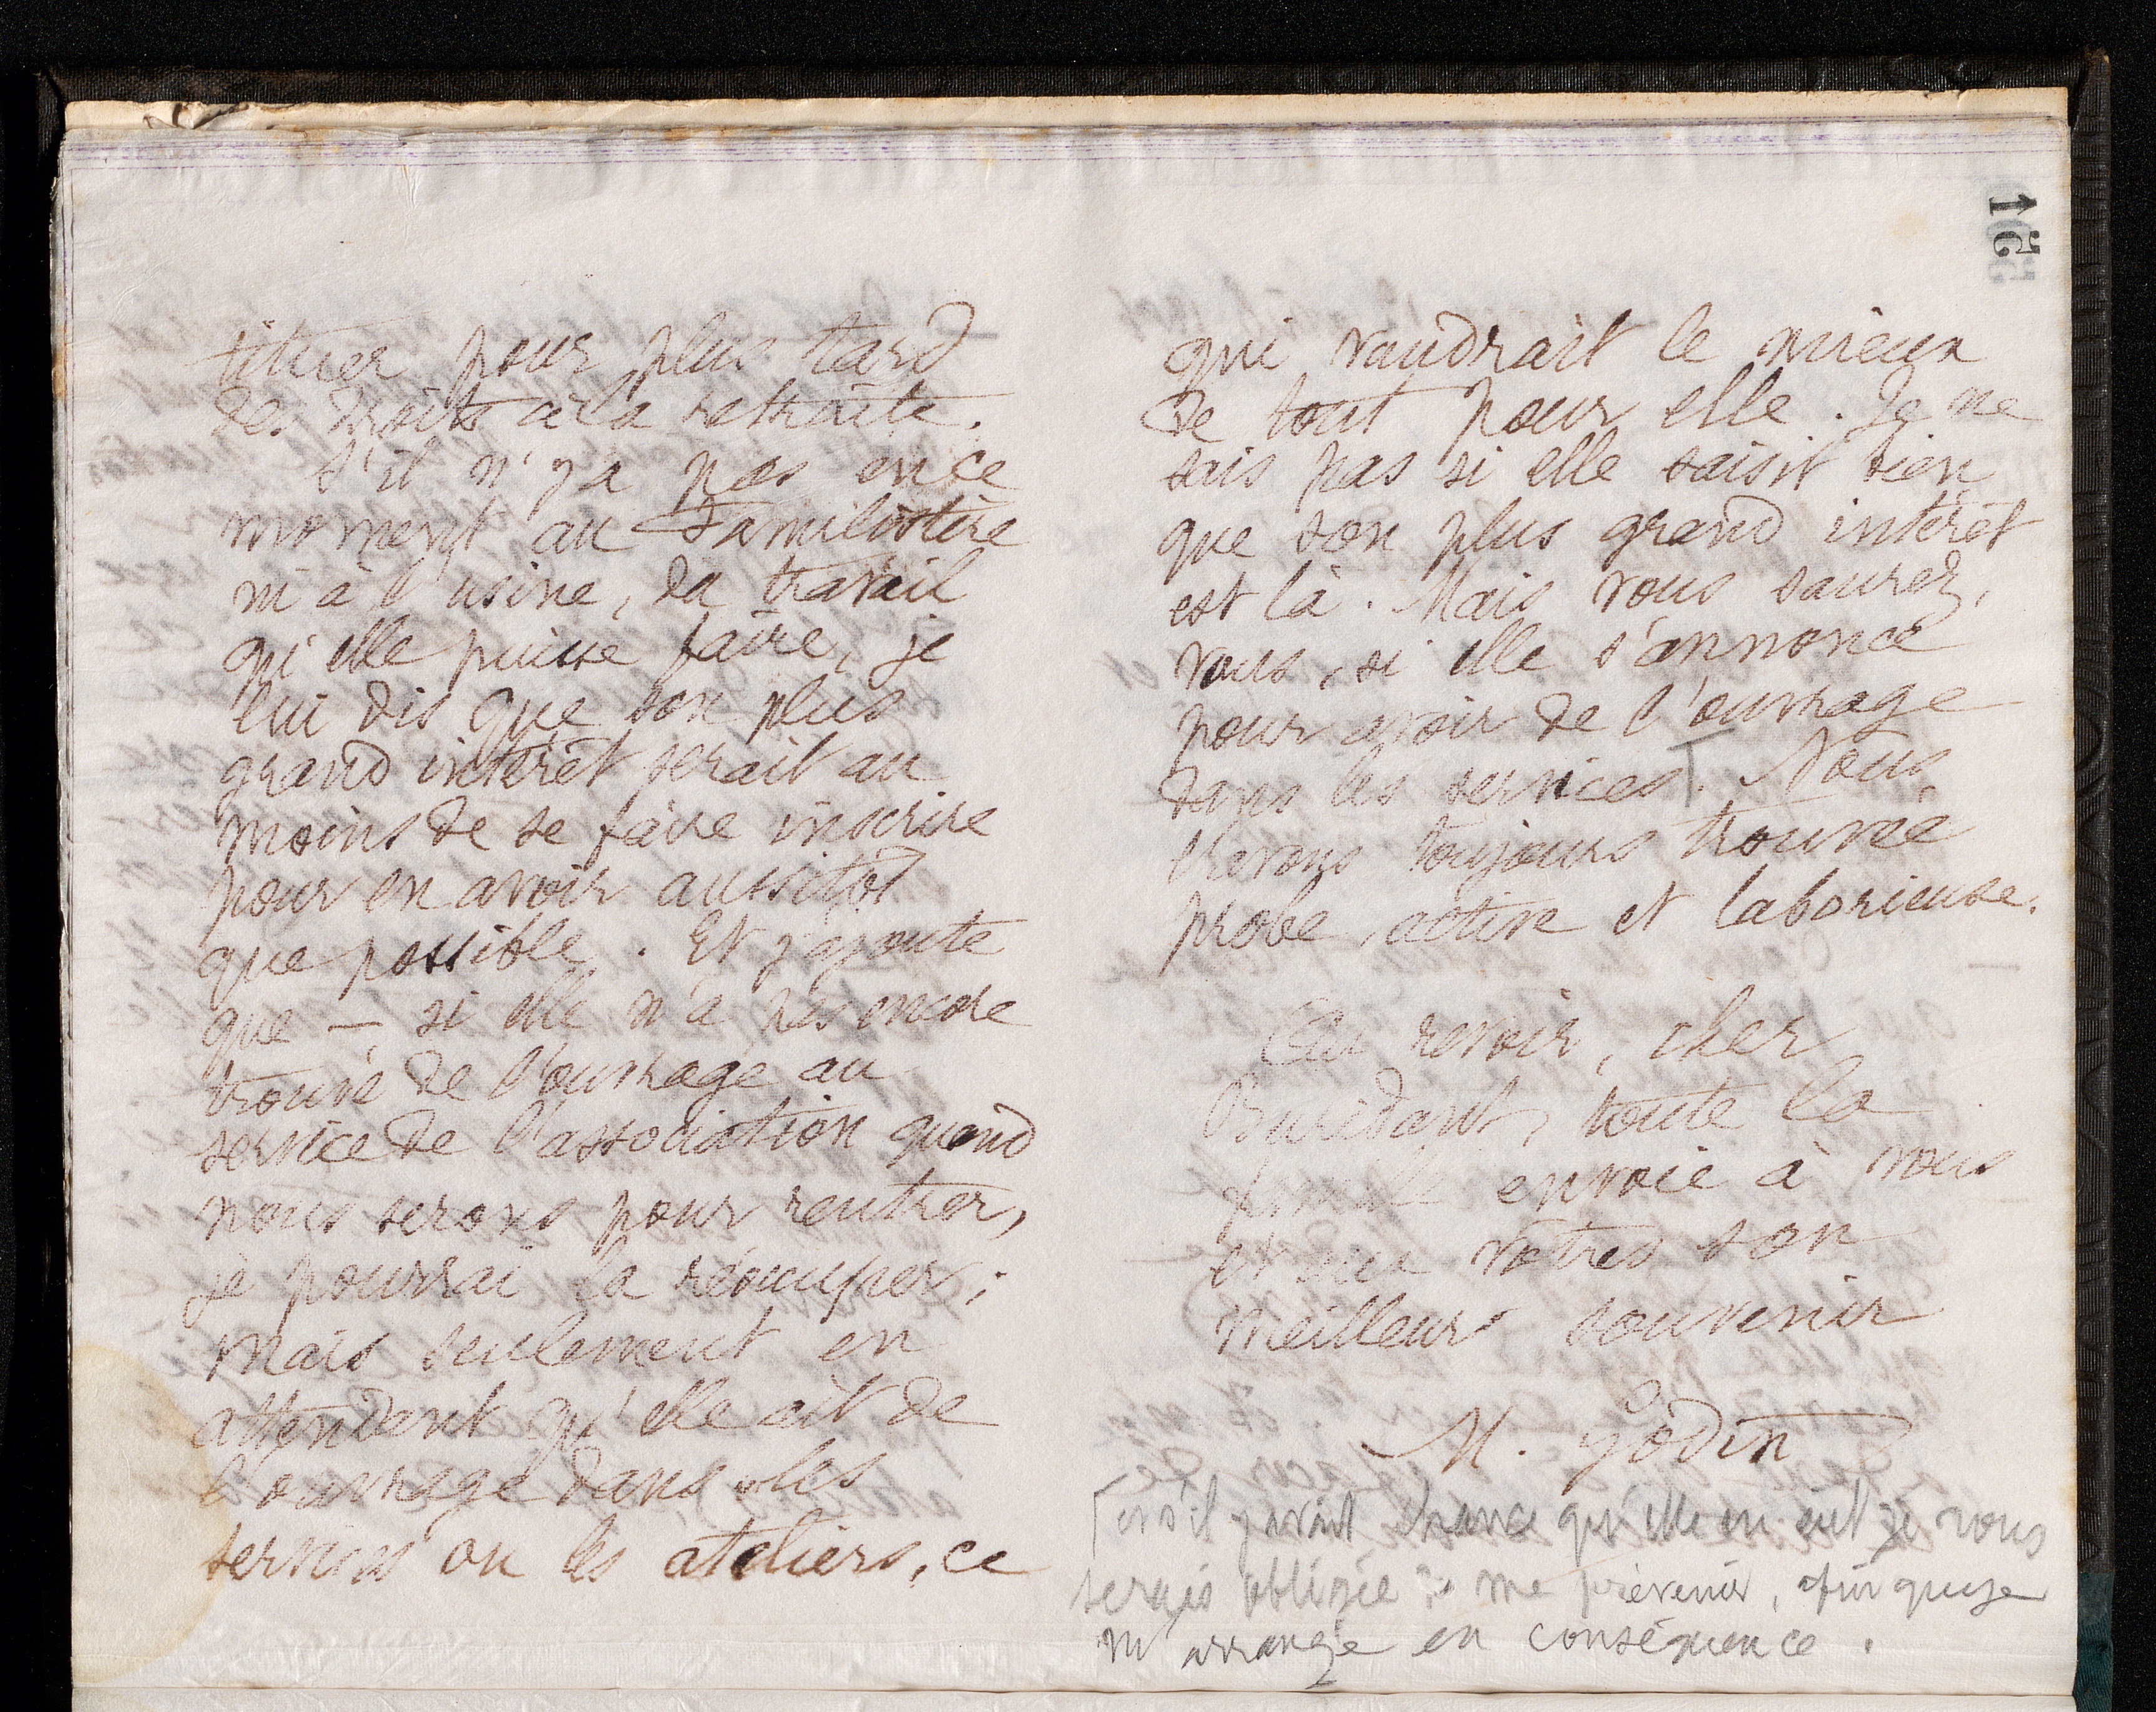 15
tituer pour plus tard
des droits à la retraite.
S'il n'y a pas en ce
moment au Familistère
ni à l'usine, du travail
qu'elle puisse faire, je
lui dis que son plus
grand intérêt serait au
moins de se faire inscrire
pour en avoir aussitôt
que possible. Et j'ajoute
que — si elle n'a pas encore
trouvé de l'ouvrage au
service de l'association quand
nous serons pour rentrer,
je pourrai la réoccuper;
mais seulement en
attendant qu'elle ait de
l'ouvrage dans les
services ou les ateliers, ce
qui vaudrait le mieux
de tout pour elle. Je ne
sais pas si elle saisit bien
que son plus grand intérêt
est là. Mais vous saurez,
vous, si elle s'annonce
pour avoir de l'ouvrage
dans les services. Nous
l'avons toujours trouvée
probe, active et laborieuse.
Au revoir, cher
Buridant, toute la
famille envoie à vous
et aux vôtres son
meilleur souvenir
M. Godin
et s'il y avait chance qu'elle en eut je vous
serais obligée de me prévenir, afin que je
m'arrange en conséquence.